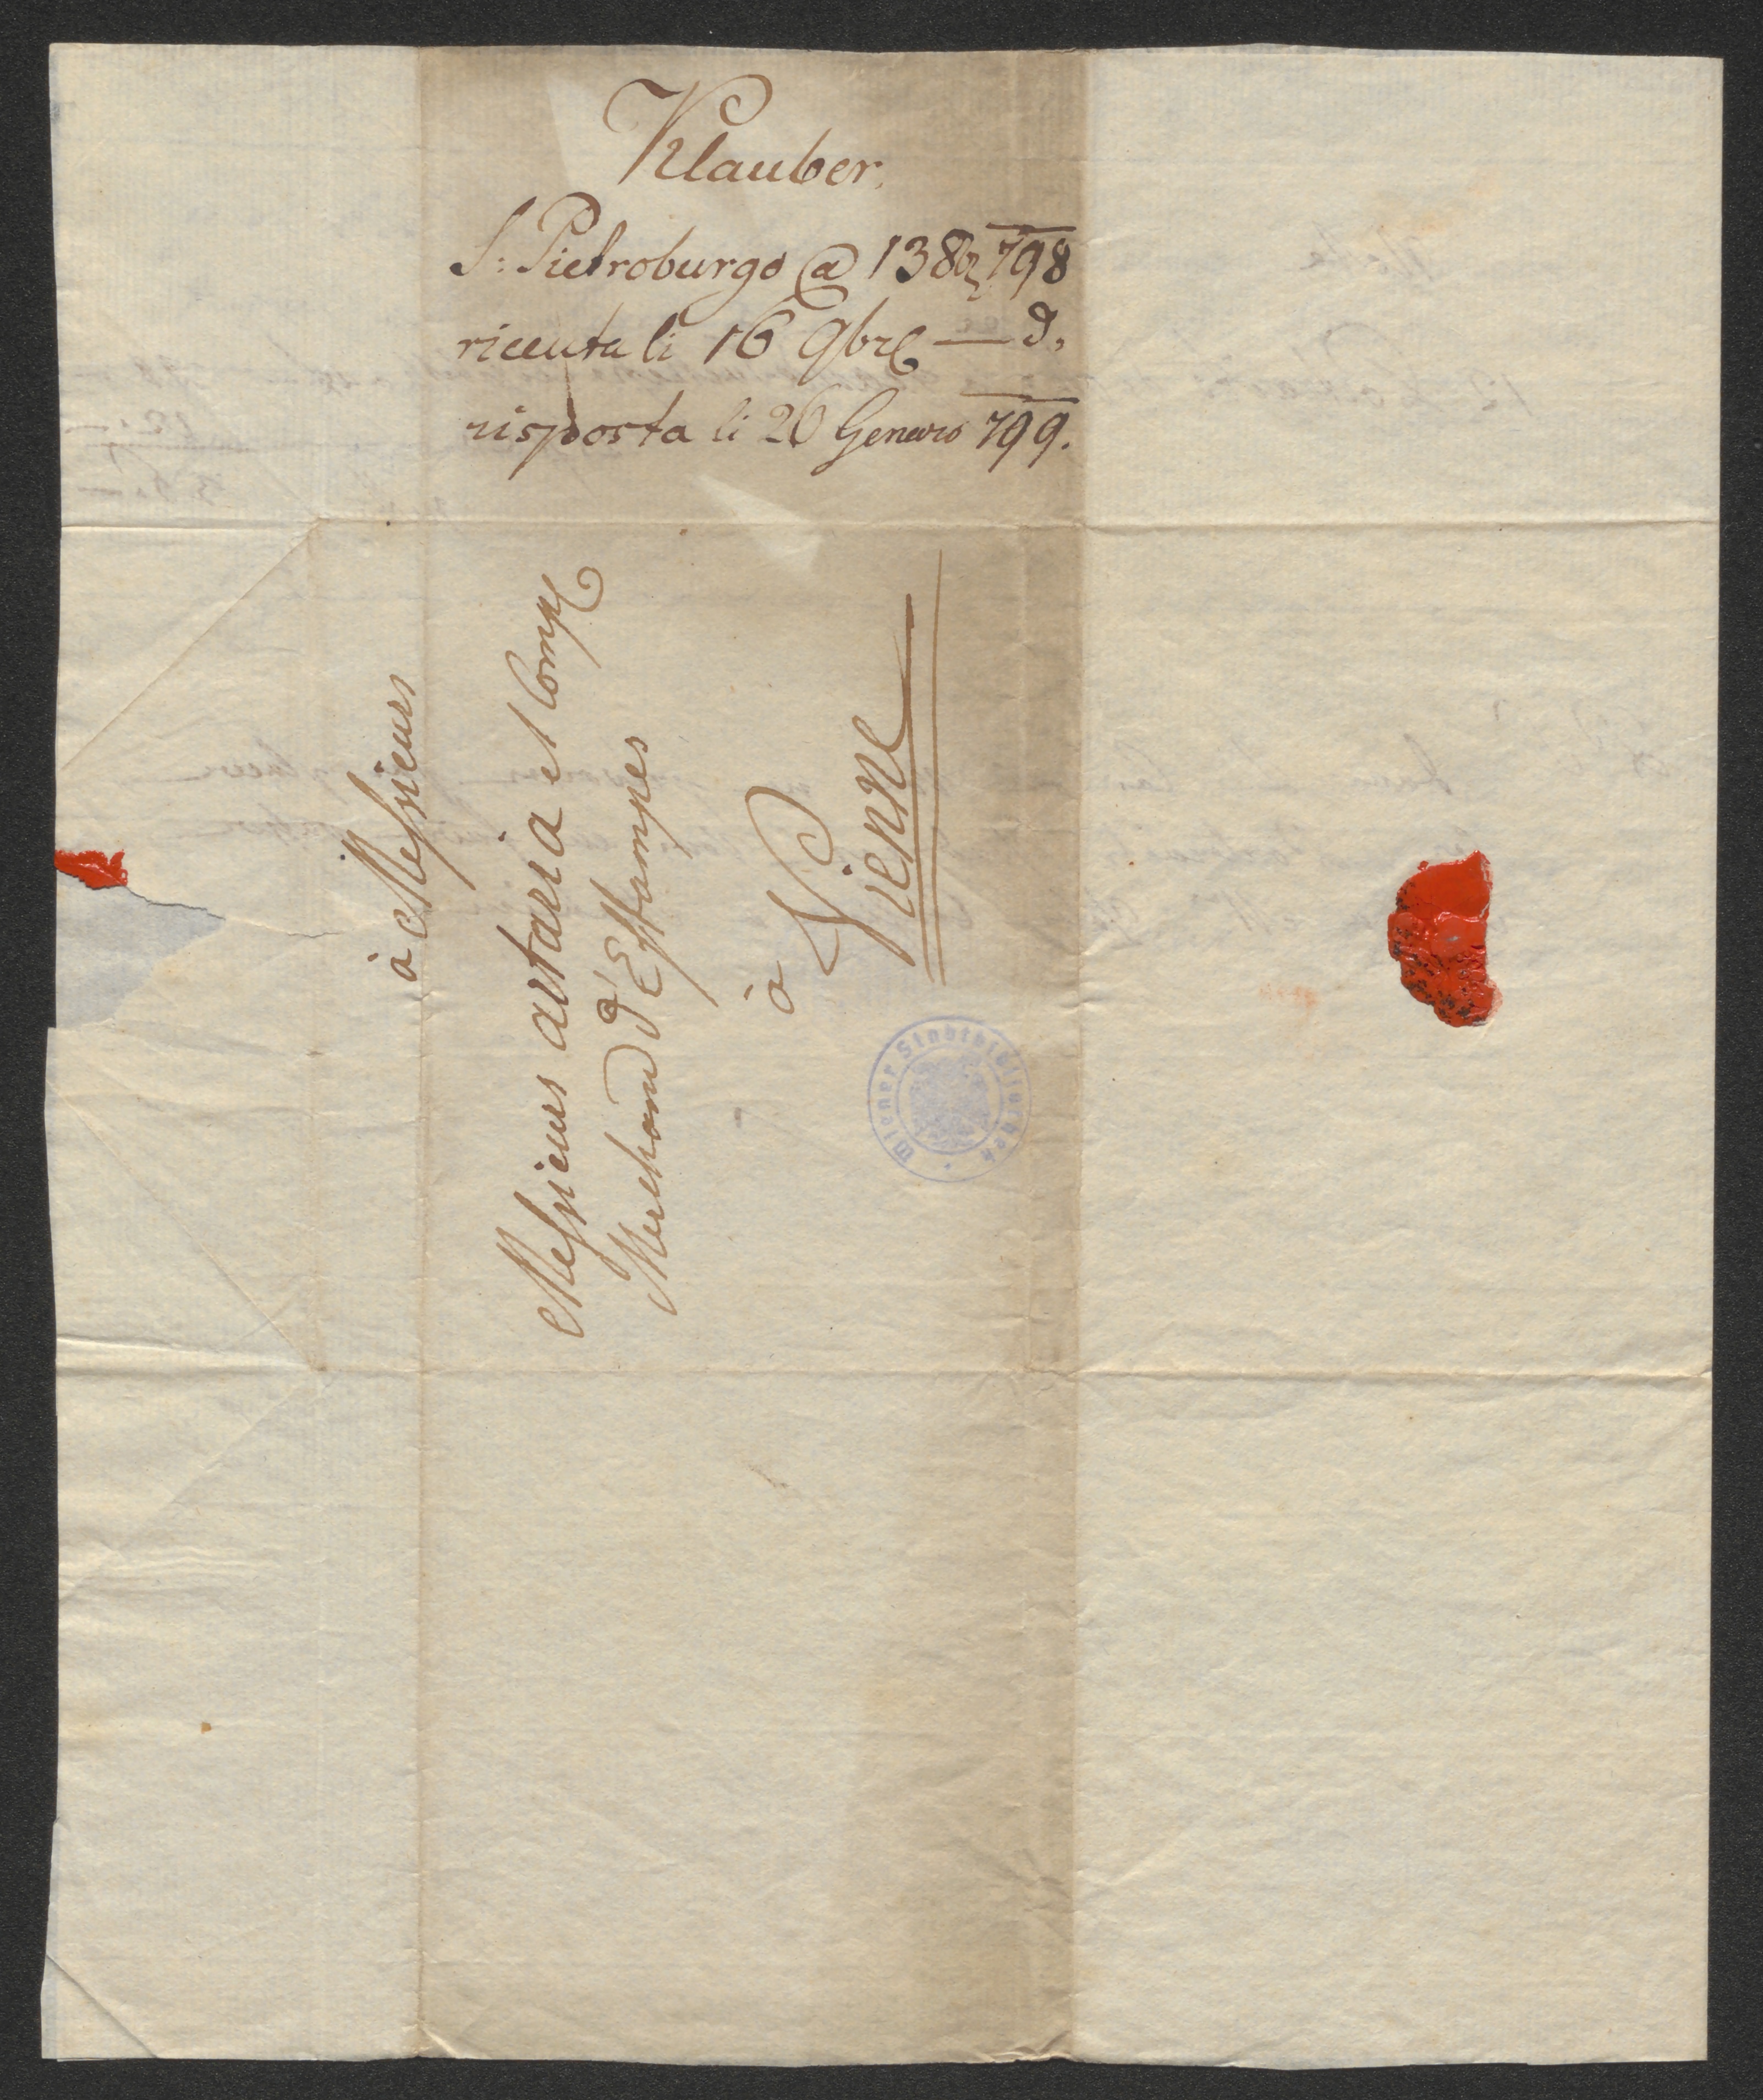 Klauber.
S: Pietroburgo @ 13 8br 798
riceuta li 16 9bre — d.
risposta li 26 Genaro 799.
à Messieurs
Messieurs artaria et Comp
Merchand d'Estampes
à
Vienne
Wiener Stadtbibliothek